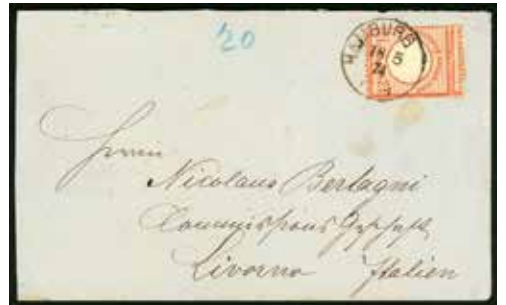 20
HAMBURG
18 5
74
Herrn
Nicolaus Bertagni
Commissions Geschäft
Livorno Italien